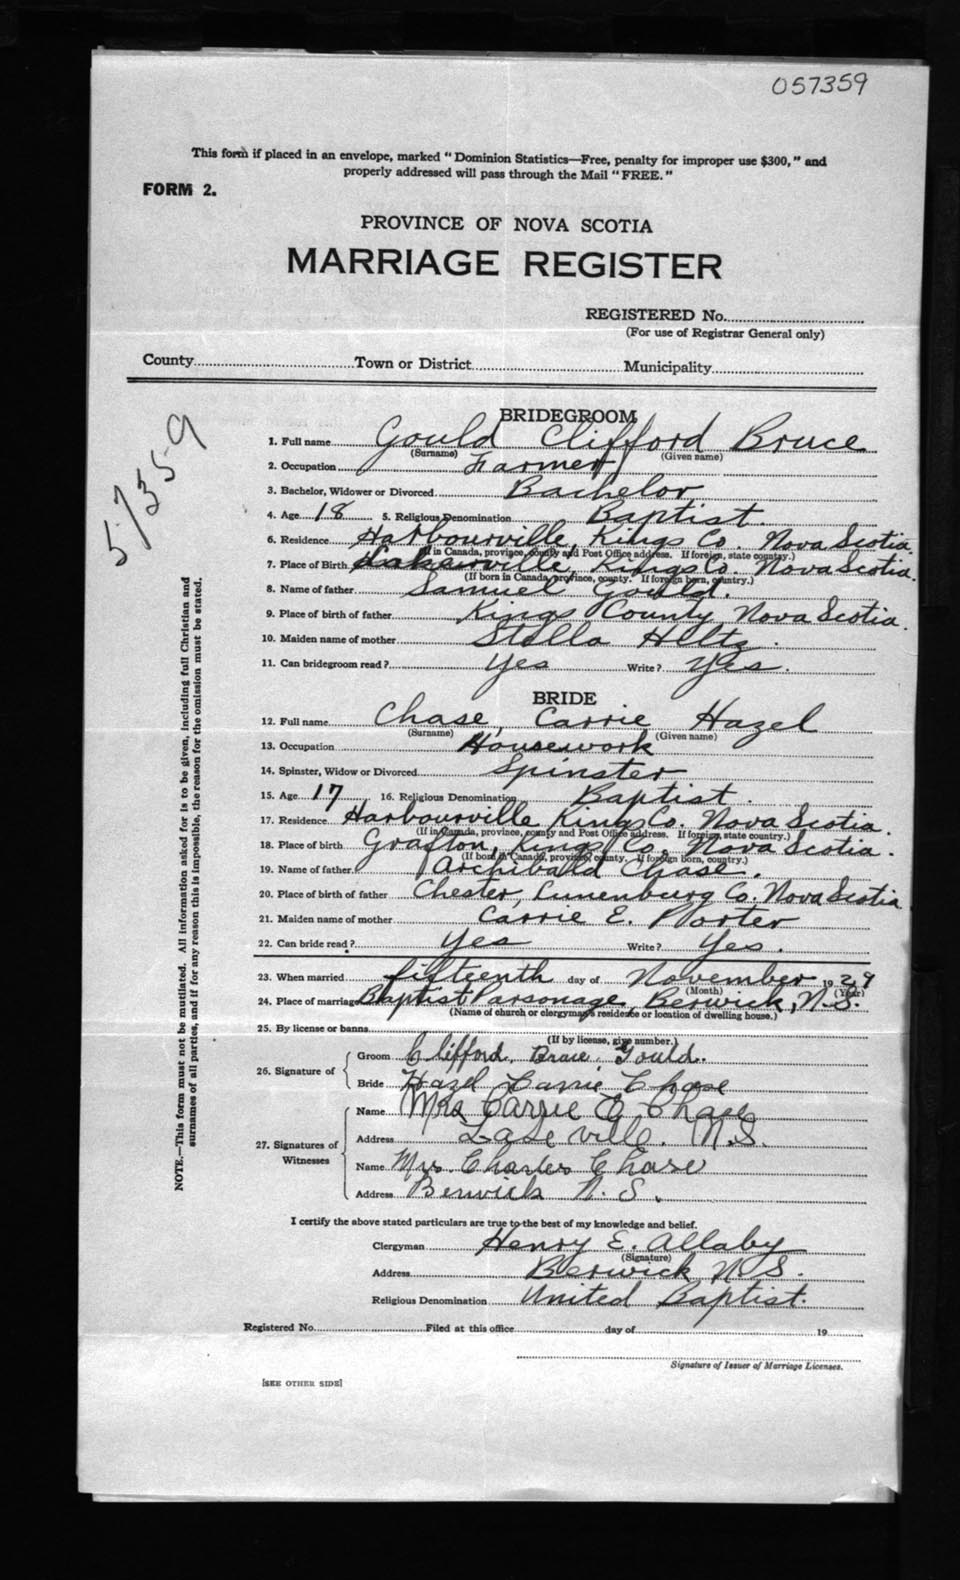 057359
This form if placed in an envelope, marked "Dominion Statistics—Free, penalty for improper use $300," and
properly addressed will pass through the Mail "FREE."
FORM 2.
PROVINCE OF NOVA SCOTIA
MARRIAGE REGISTER
REGISTERED No.
(For use of Registrar General only)
County Town or District Municipality
57359
NOTE.—This form must not be mutilated. All information asked for is to be given, including full Christian and
surnames of all parties, and if for any reason this is impossible, the reason for the omission must be stated.
BRIDEGROOM
1. Full name Gould Clifford Bruce
(Surname) (Given name)
2. Occupation Farmer
3. Bachelor, Widower or Divorced Bachelor
4. Age 18 5. Religious Denomination Baptist.
6. Residence Harbourville, Kings Co. Nova Scotia.
(If in Canada, province, county and Post Office address. If foreign, state country.)
7. Place of Birth Kings Co. Nova Scotia.
(If born in Canada, province, county. If foreign born, country.)
8. Name of father Samuel Gould.
9. Place of birth of father Kings County Nova Scotia.
10. Maiden name of mother Stella
11. Can bridegroom read? Yes Write? Yes.
BRIDE
12. Full name Chase, Carrie Hazel
(Surname) (Given name)
13. Occupation Housework
14. Spinster, Widow or Divorced Spinster
15. Age 17 16. Religious Denomination Baptist.
17. Residence Harbourville Kings Co. Nova Scotia.
(If in Canada, province, county and Post Office address. If foreign, state country.)
18. Place of birth Grafton, Kings Co. Nova Scotia.
(If born in Canada, province, county. If foreign born, country.)
19. Name of father Archibald Chase.
20. Place of birth of father Chester, Lunenburg Co. Nova Scotia
21. Maiden name of mother Carrie E. Porter
22. Can bride read? Yes Write? Yes.
23. When married fifteenth day of November 1929
(Month) (Year)
24. Place of marriage Baptist Parsonage, Berwick, N.S.
(Name of church or clergyman's residence or location of dwelling house.)
25. By license or banns
(If by license, give number.)
26. Signature of Groom Clifford Bruce Gould.
Bride Hazel Carrie Chase
27. Signatures of Witnesses Name Mrs Carrie Chase
Address Lakeville. N.S.
Name Mrs. Charles Chase
Address Berwick N. S.
I certify the above stated particulars are true to the best of my knowledge and belief.
Clergyman Henry E. Allaby
(Signature)
Address Berwick N.S.
Religious Denomination United Baptist.
Registered No. Filed at this office day of 19
Signature of Issuer of Marriage Licenses.
[SEE OTHER SIDE]